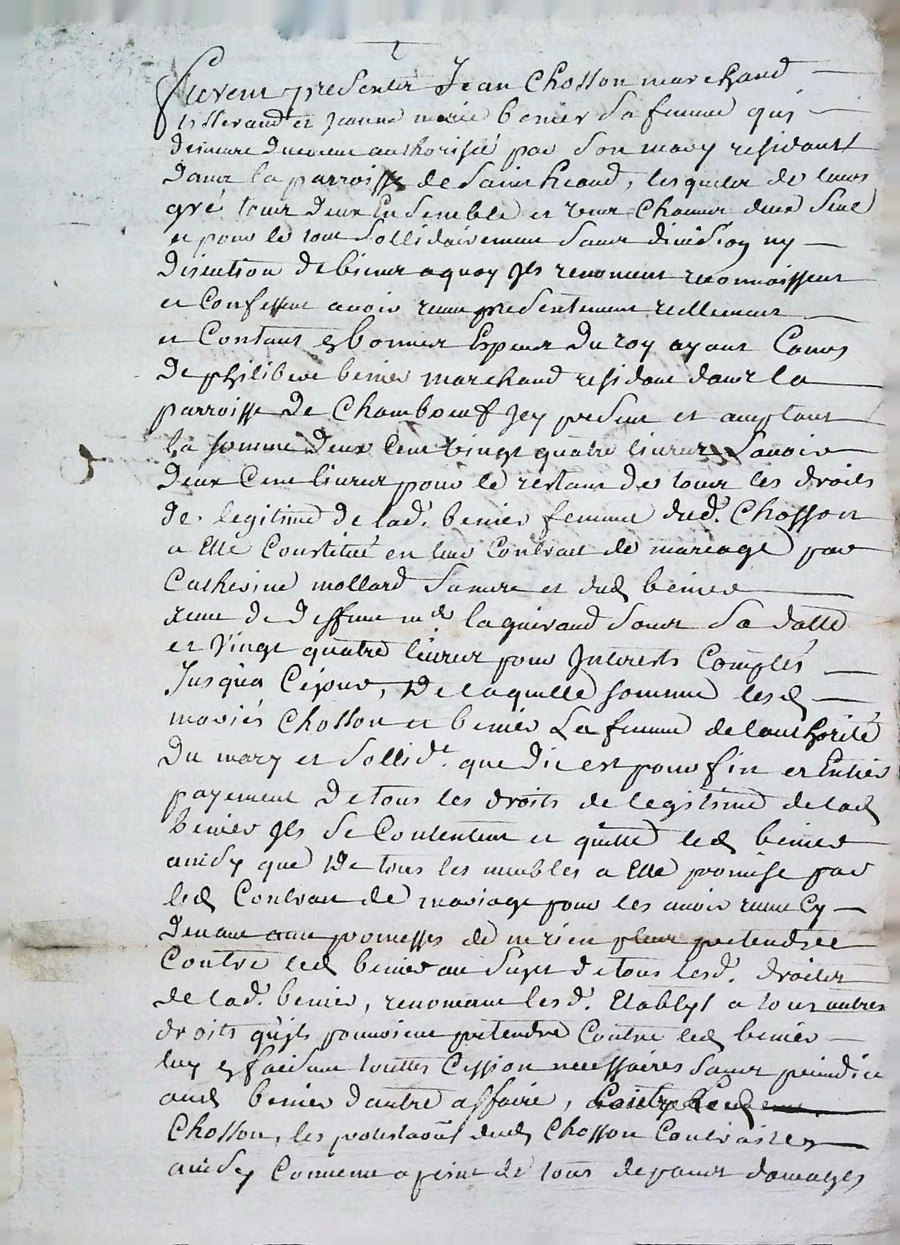 Furent presents Jean Chosson marchand
tisserand et Jeanne marie benier sa femme qui
demeure duement authorisée par son mary residants
dans la parroisse de saint heand, lesquels de leurs
gré tous deux Ensemble et l'un Chacun deux seul
et pour le tout sollidairement sans division ny
discution de biens a quoy Jls renoncent reconnoissent
et Confessent avoir reçu presentement reellement
et Contant en bonnes Especes du roy ayant Cours
de philibert benier marchand residant dans la
parroisse de Chambœuf Jcy present et acceptant
la somme deux Cent vingt quatre livres sçavoir
deux Cent livres pour le restant de tous les droits
de legitime de lad. benier femme dud. Chosson
a Elle Constitué en leur Contrat de mariage par
Catherine mollard sa mere et dud benier
reçu de deffunt me laguirand sous sa datte
et vingt quatre livres pour Jnterests Comptés
Jusqua Cejour, de laquelle somme lesd
mariés Chosson et benier La femme de lauthorité
du mary et sollidt. que dit est pour fin et Entier
payement de tous les droits de legitime de lad
benier Jls se Contentent et quitte led benier
ainsy que de tous les meubles a Elle promise par
led Contrat de mariage pour les avoir reçu Cy
devant avec promesses de ne rien pleus pretendre
Contre led benier au sujet de tous lesd. droits
de lad. benier, renonçant lesd. Etablys a tous autres
droits qu'jls pouvoient pretendre Contre led benier
luy en faisant touttes Cession necessaires sans prejudice
aud benier d'autre affaire,
Chosson, les protestaõns dud Chosson Contraires
ainsy Convenu a peine de tous depens domages